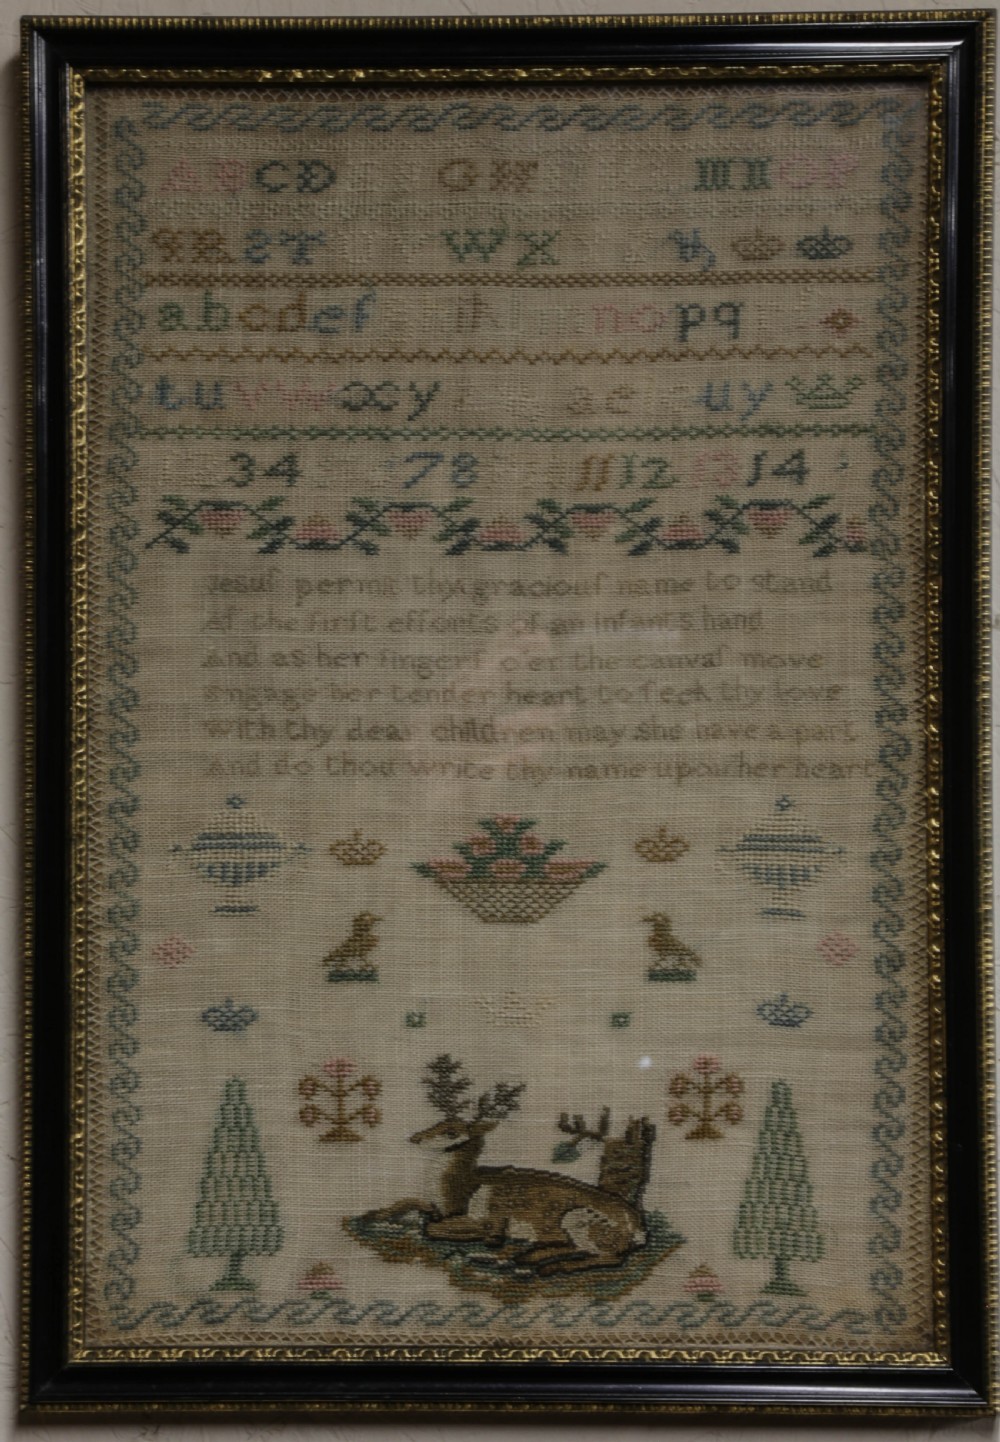 A B C D E G H M N O P
Q R S T U V W X Y
a b c d e f i k n o p q
t u v w x y a e u y
3 4 7 8 11 12 13 14
Jesuſ permit thy graciouſ name to stand
Aſ the firſt efforts of an infants hand
And as her fingerſ o'er the canvaſ move
Engage her tender heart to ſeek thy love
With thy dear children may she have a part
And do thou write thy name upon her heart